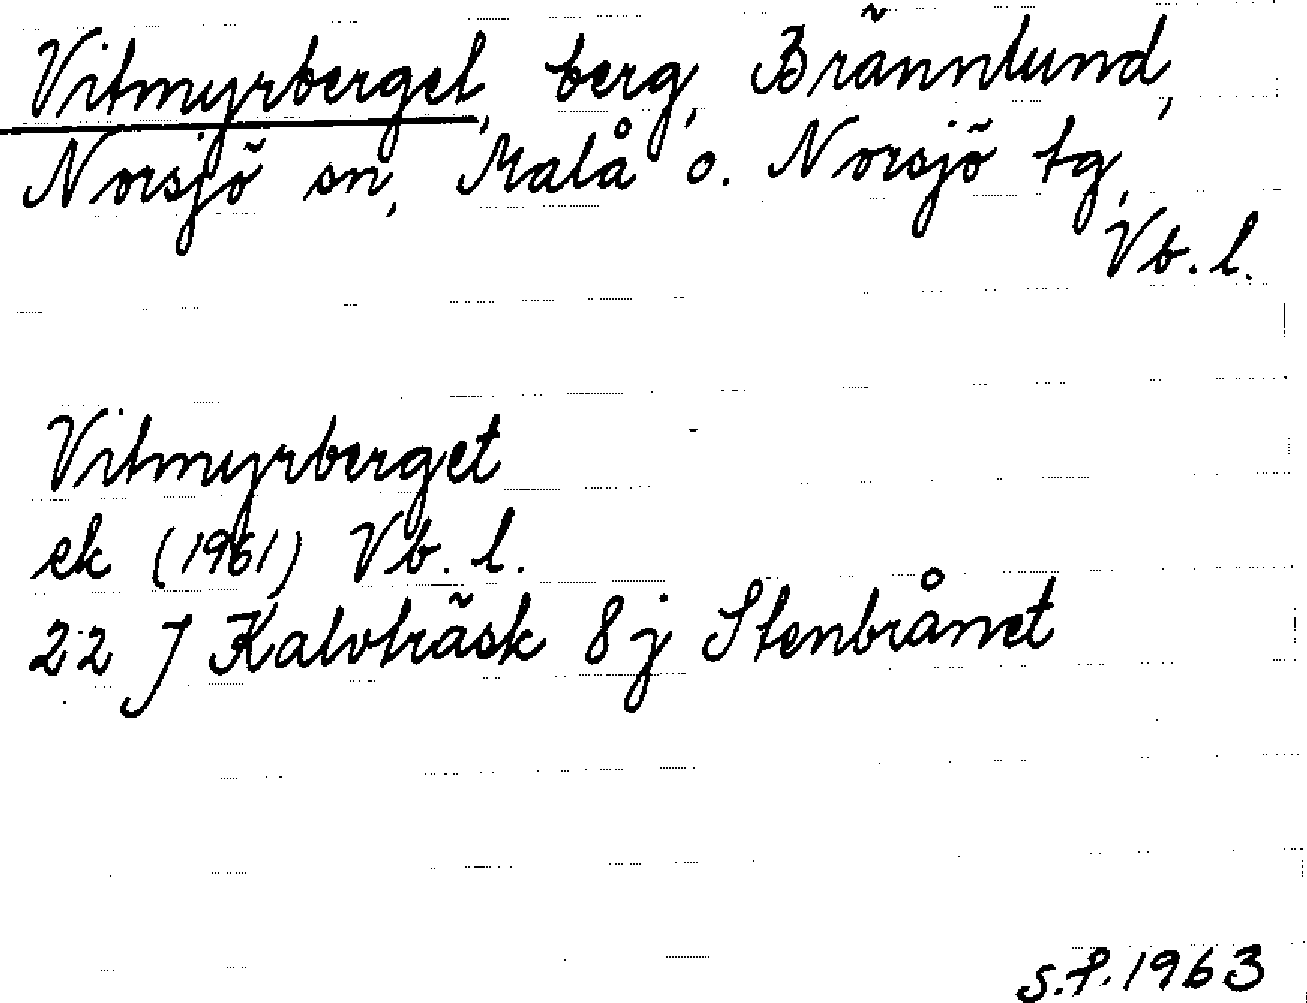 Vitmyrberget, berg, Brännlund,
Norsjö sn, Malå o. Norsjö tg,
Vb. l.
Vitmyrberget
ek (1961) Vb. l.
22 J Kalvträsk 8j Stenbrånet
S.P. 1963